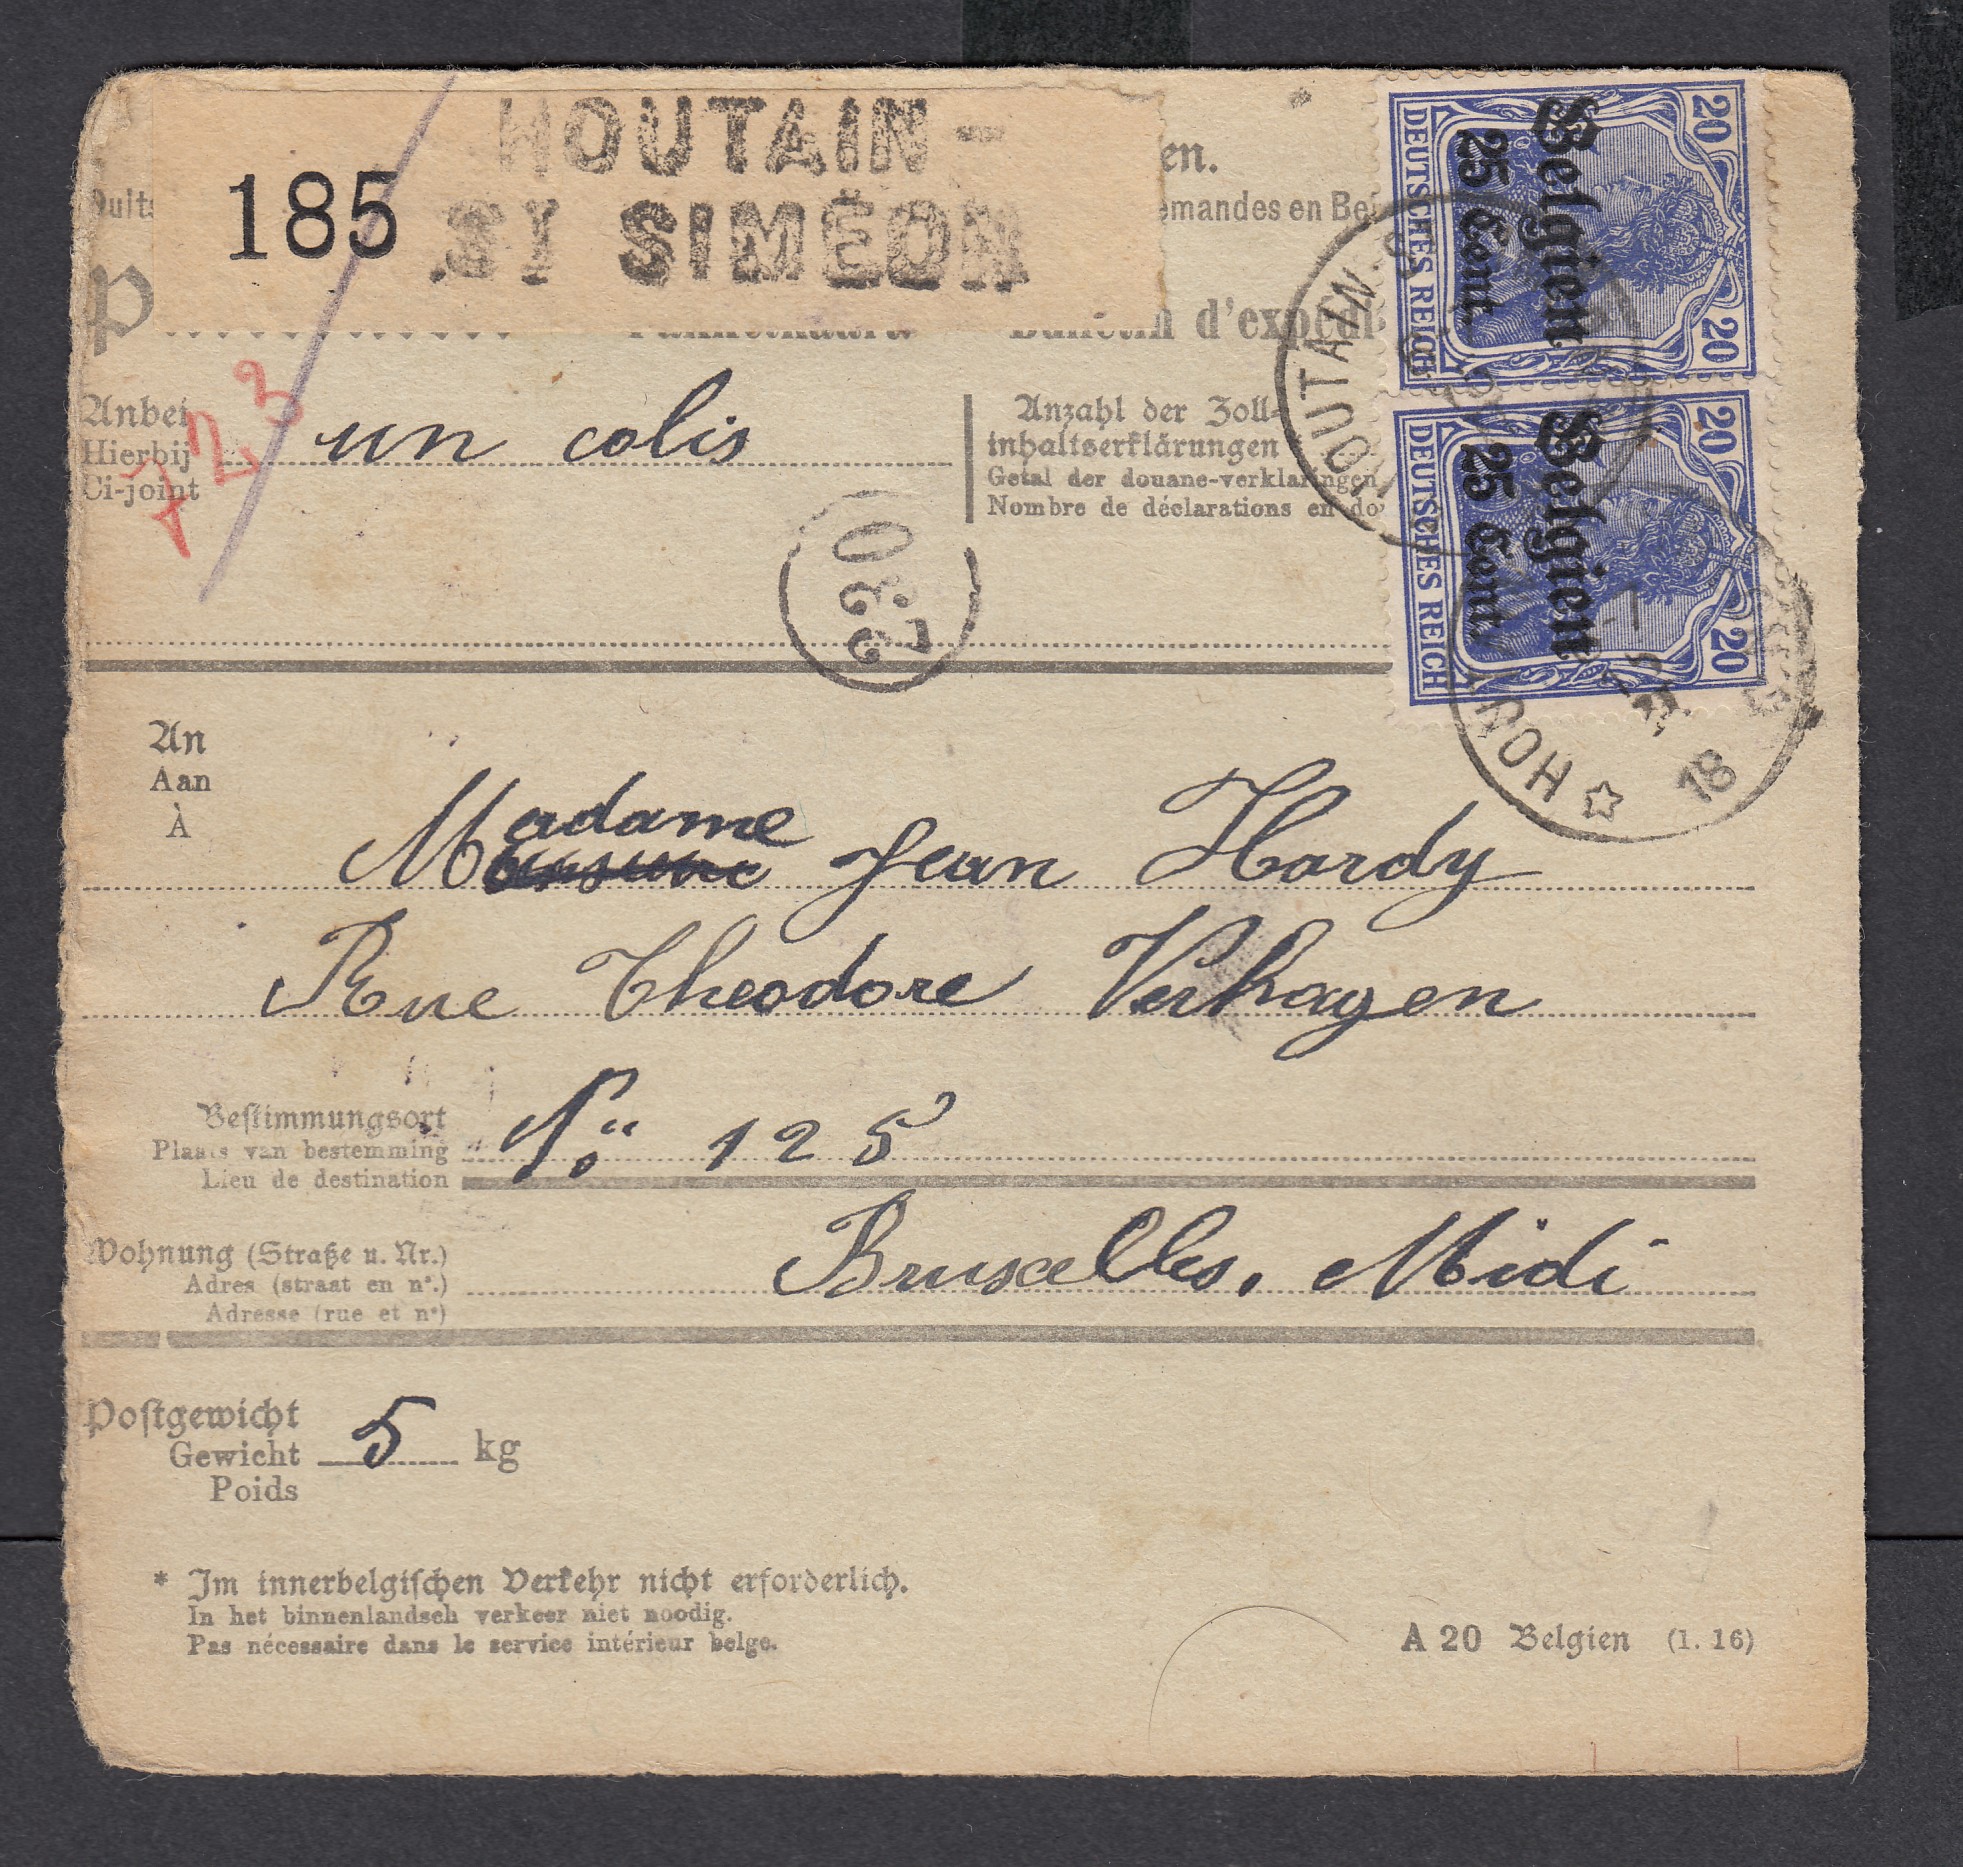 HOUTAIN-
185 ST SIMÉON
en.
emandes en Bel
Bulletin d'expédi
Anbei
Hierbij
Ci-joint
un colis
723
Anzahl der Zoll-
inhaltserklärungen
Getal der douane-verklaringen
Nombre de déclarations en do
20 20
Belgien
25 Cent.
DEUTSCHES REICH
20 20
Belgien
25 Cent.
DEUTSCHES REICH
HOUTAIN. S
HOU
18
An
Aan
À
Madame Jean Hardy
Rue Theodore Verhagen
Bestimmungsort
Plaats van bestemming
Lieu de destination
No 125
Wohnung (Straße u. Nr.)
Adres (straat en n°.)
Adresse (rue et n°)
Bruxelles. Midi
Postgewicht
Gewicht
Poids
5 kg
* Im innerbelgischen Verkehr nicht erforderlich.
In het binnenlandsch verkeer niet noodig.
Pas nécessaire dans le service intérieur belge.
A 20 Belgien (1. 16)